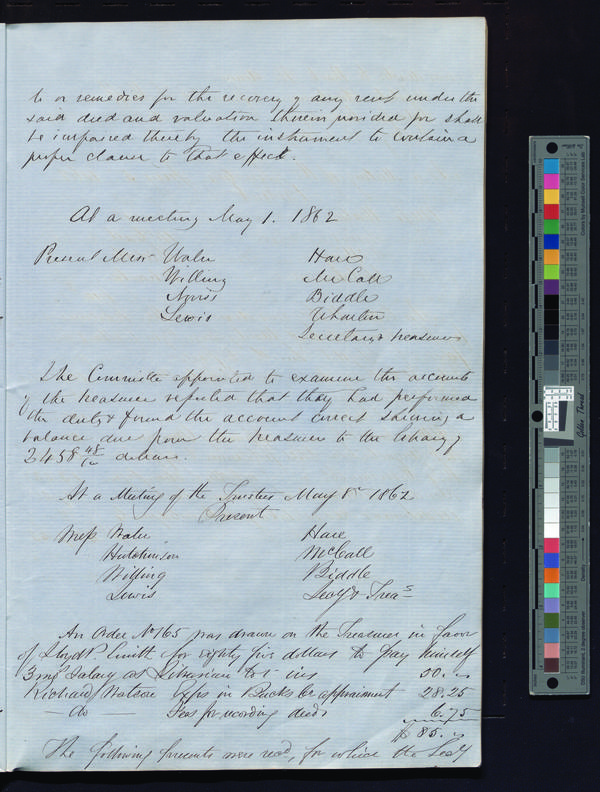 to or remedies for the recovery of any rent under the
said deed and valuation therein provided for shall
be impaired thereby the instrument to contain a
proper clause to that effect.
At a meeting May 1. 1862
Present Messrs Waln Hare
Willing McCall
Norris Biddle
Lewis Wharton
Secretary & treasurer
The Committee appointed to examine the accounts
of the treasurer reported that they had performed
the duty & found the account correct shewing a
balance due from the treasurer to the library of
2458 48/100 dollars.
At a Meeting of the Trustees May 8th 1862
Present
Mess Waln Hare
Hutchinson McCall
Willing Biddle
Lewis Secy & Treas
An Order No 165 was drawn on the Treasurer in favor
of Lloyd P. Smith for eighty five dollars to pay himself
3 mos Salary as Librarian to 1 inst 50.
Richard Watson Exps in Bucks Co appraisment 28.25
— do — Fees for recording deeds 6.75
$ 85.
The following presents were recd, for which the Secy